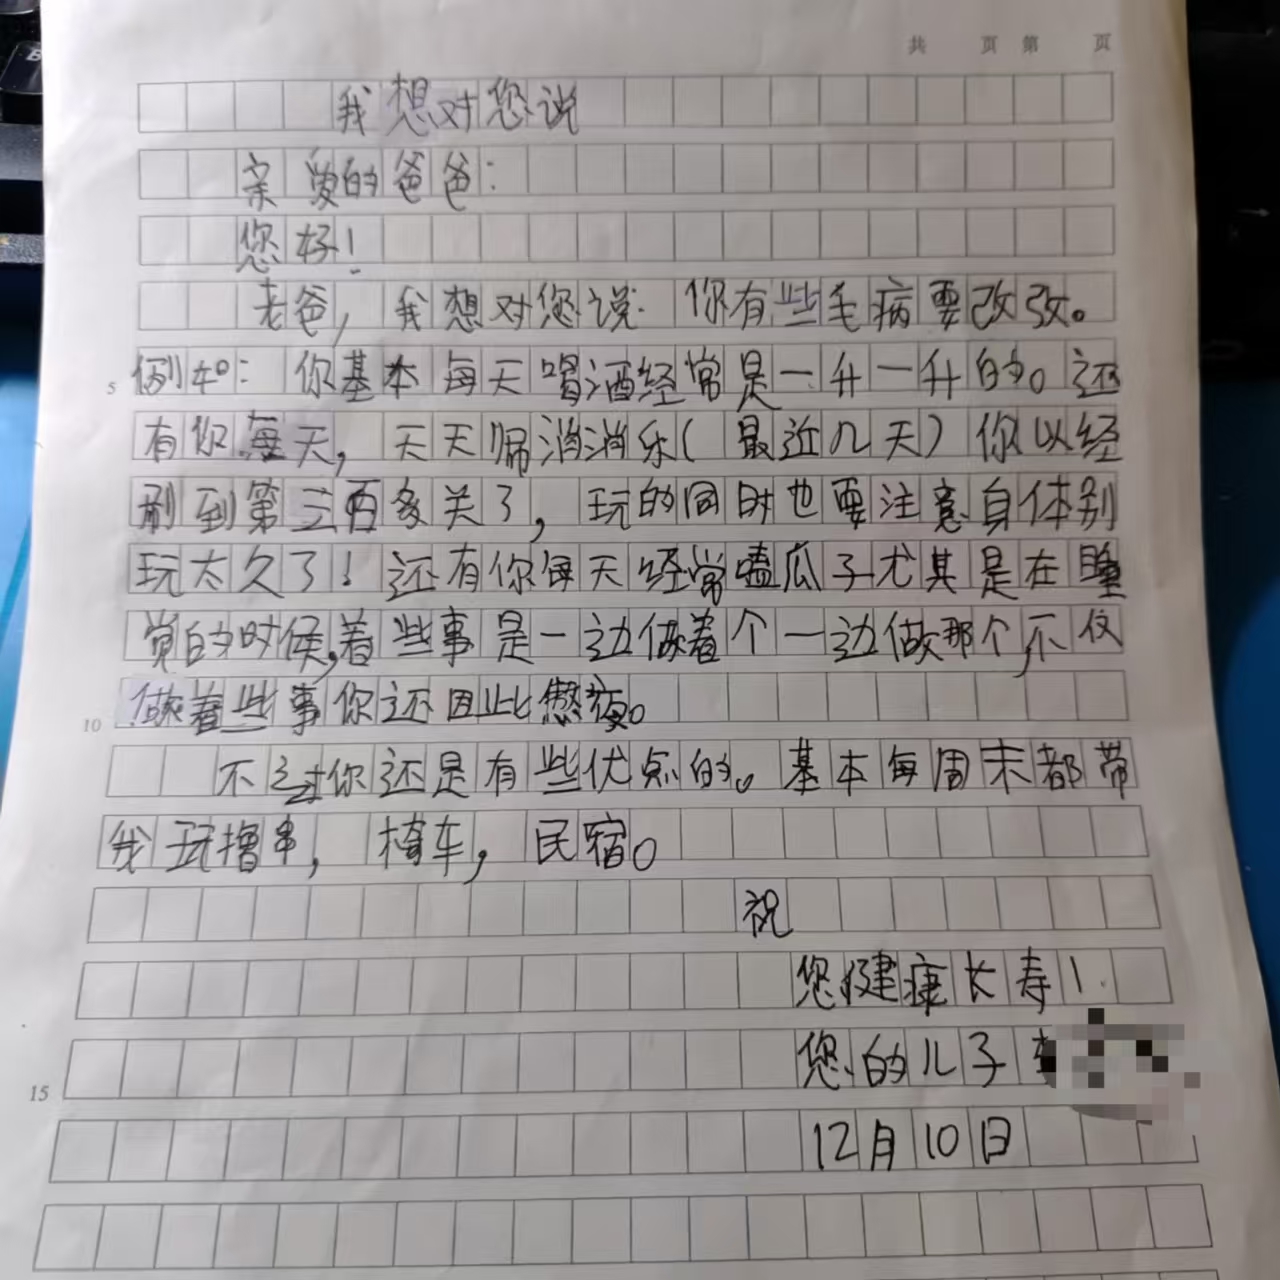 共 页 第 页
我想对您说
亲爱的爸爸：
您好！
老爸，我想对您说：你有些毛病要改改。
5 例如：你基本每天喝酒经常是一升一升的。还
有你每天，天天刷消消乐（最近几天）你以经
刷到第三百多关了，玩的同时也要注意身体别
玩太久了！还有你每天经常嗑瓜子尤其是在睡
觉的时候，着些事是一边做着个一边做那个，不仅
10 做着些事你还因此熬夜。
不过你还是有些优点的。基本每周末都带
我玩撸串，椅车，民宿。
祝
您健康长寿！
15 您的儿子
12月10日